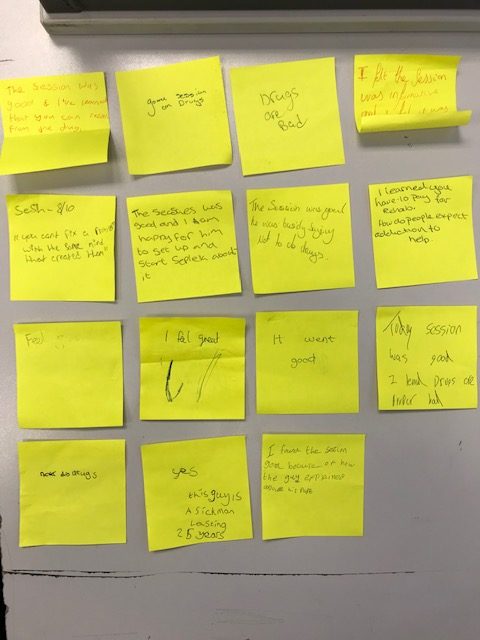 The Session was
good & I've learned
that you can
from the drug.
good session
on Drugs
Drugs
are
Bad
I felt the session
was informative
and
Sesh - 8/10
"you cant fix a
with the same mind
that created them"
The sessions was
good and I am
happy for him
to set up and
start about
it
The Session was good
he was basicly saying
not to do drugs.
I learned you
have to pay for
Rehab.
How do people expect
addiction to
help.
Feel
I feel great
It went
good
Today session
was good
I lend Drugs are
bad
never do drugs
yes
this guy is
A sickman
Lasting
25 years
I found the session
good because of how
the guy explained